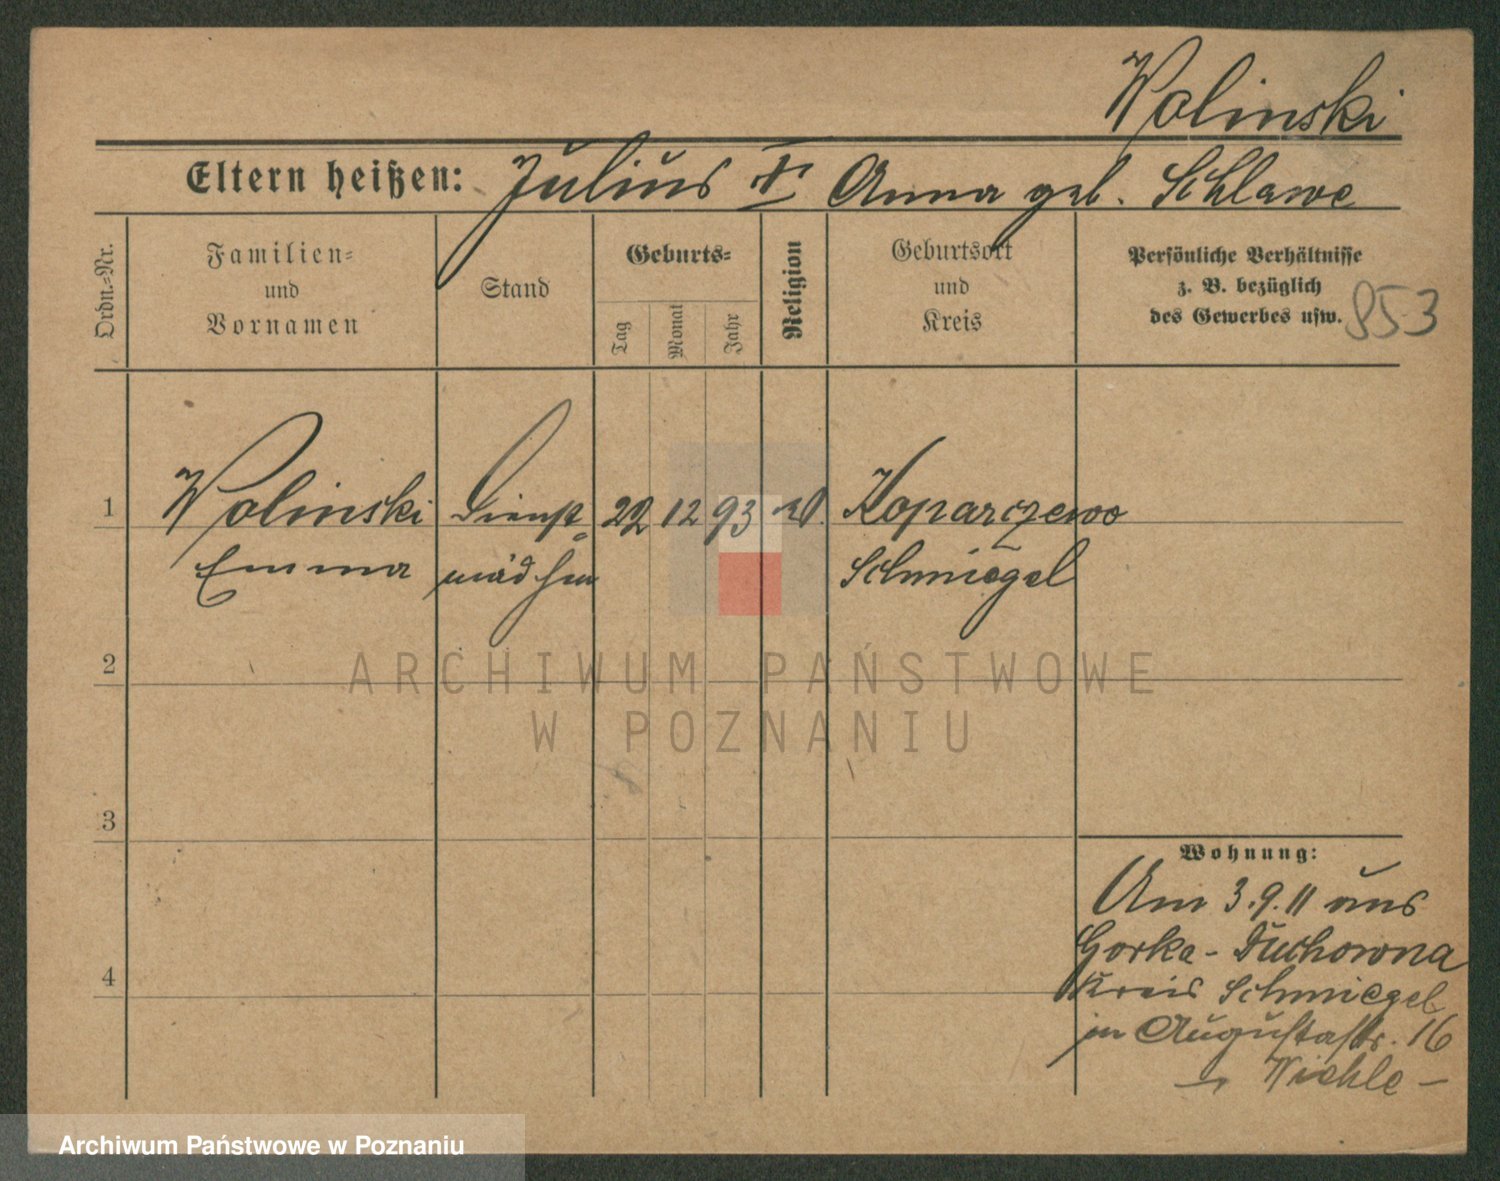 Wolinski
Eltern heißen: Julius † Anna geb. Schlawe
Ordn.=Nr.
Familien=
und
Vornamen
Stand
Geburts=
Tag
Monat
Jahr
Religion
Geburtsort
und
Kreis
Persönliche Verhältnisse
z. B. bezüglich
des Gewerbes usw.
853
1 Wolinski Dienst= 22 12 93 Koparczewo
Emma mädchen Schmiegel
2
3
4
Wohnung:
Am 3.9.11 aus
Gorka-Duchowna
Kreis Schmiegel
in Augustastr. 16
Wiehle -
ARCHIWUM PAŃSTWOWE
W POZNANIU
Archiwum Państwowe w Poznaniu